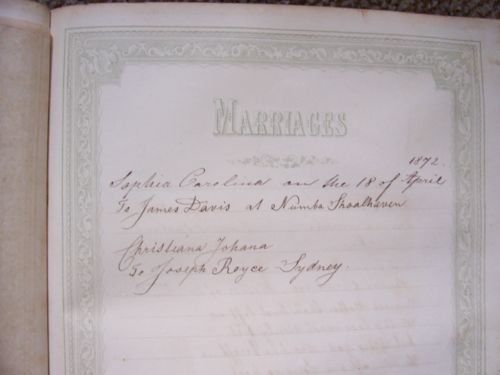 MARRIAGES
1872.
Sophia Carolina on the 18 of April
To James Davis at Numba Shoalhaven
Christiana Johana
To Joseph Royce Sydney.